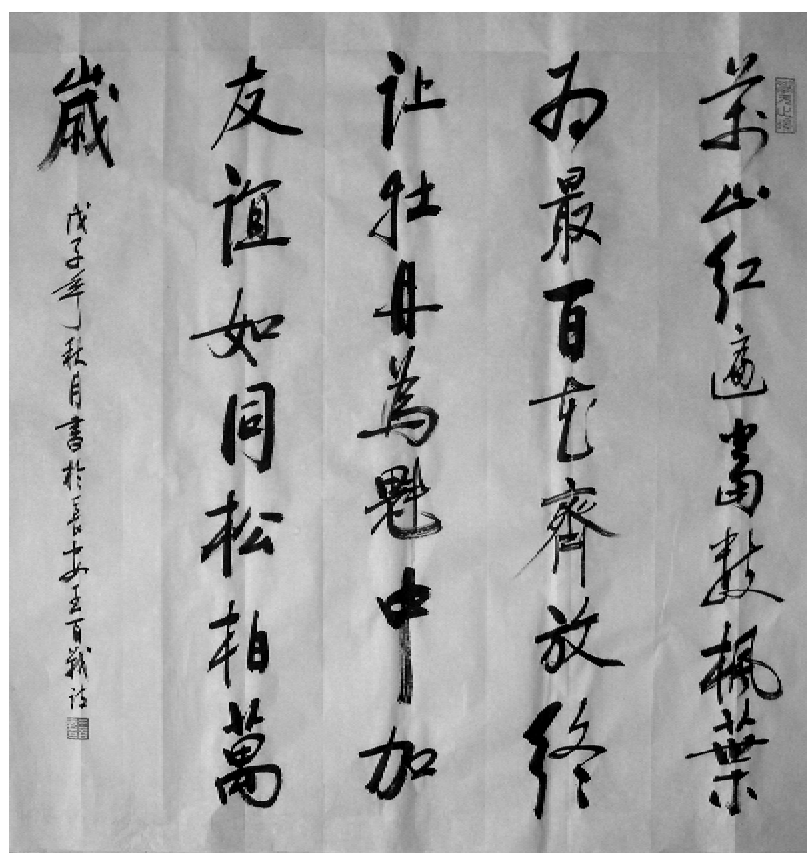 萬山红遍當數楓葉
为最百花齊放终
让牡丹為魁中加
友誼如同松柏萬
歲
戊子年秋月書於長安王百戰詩